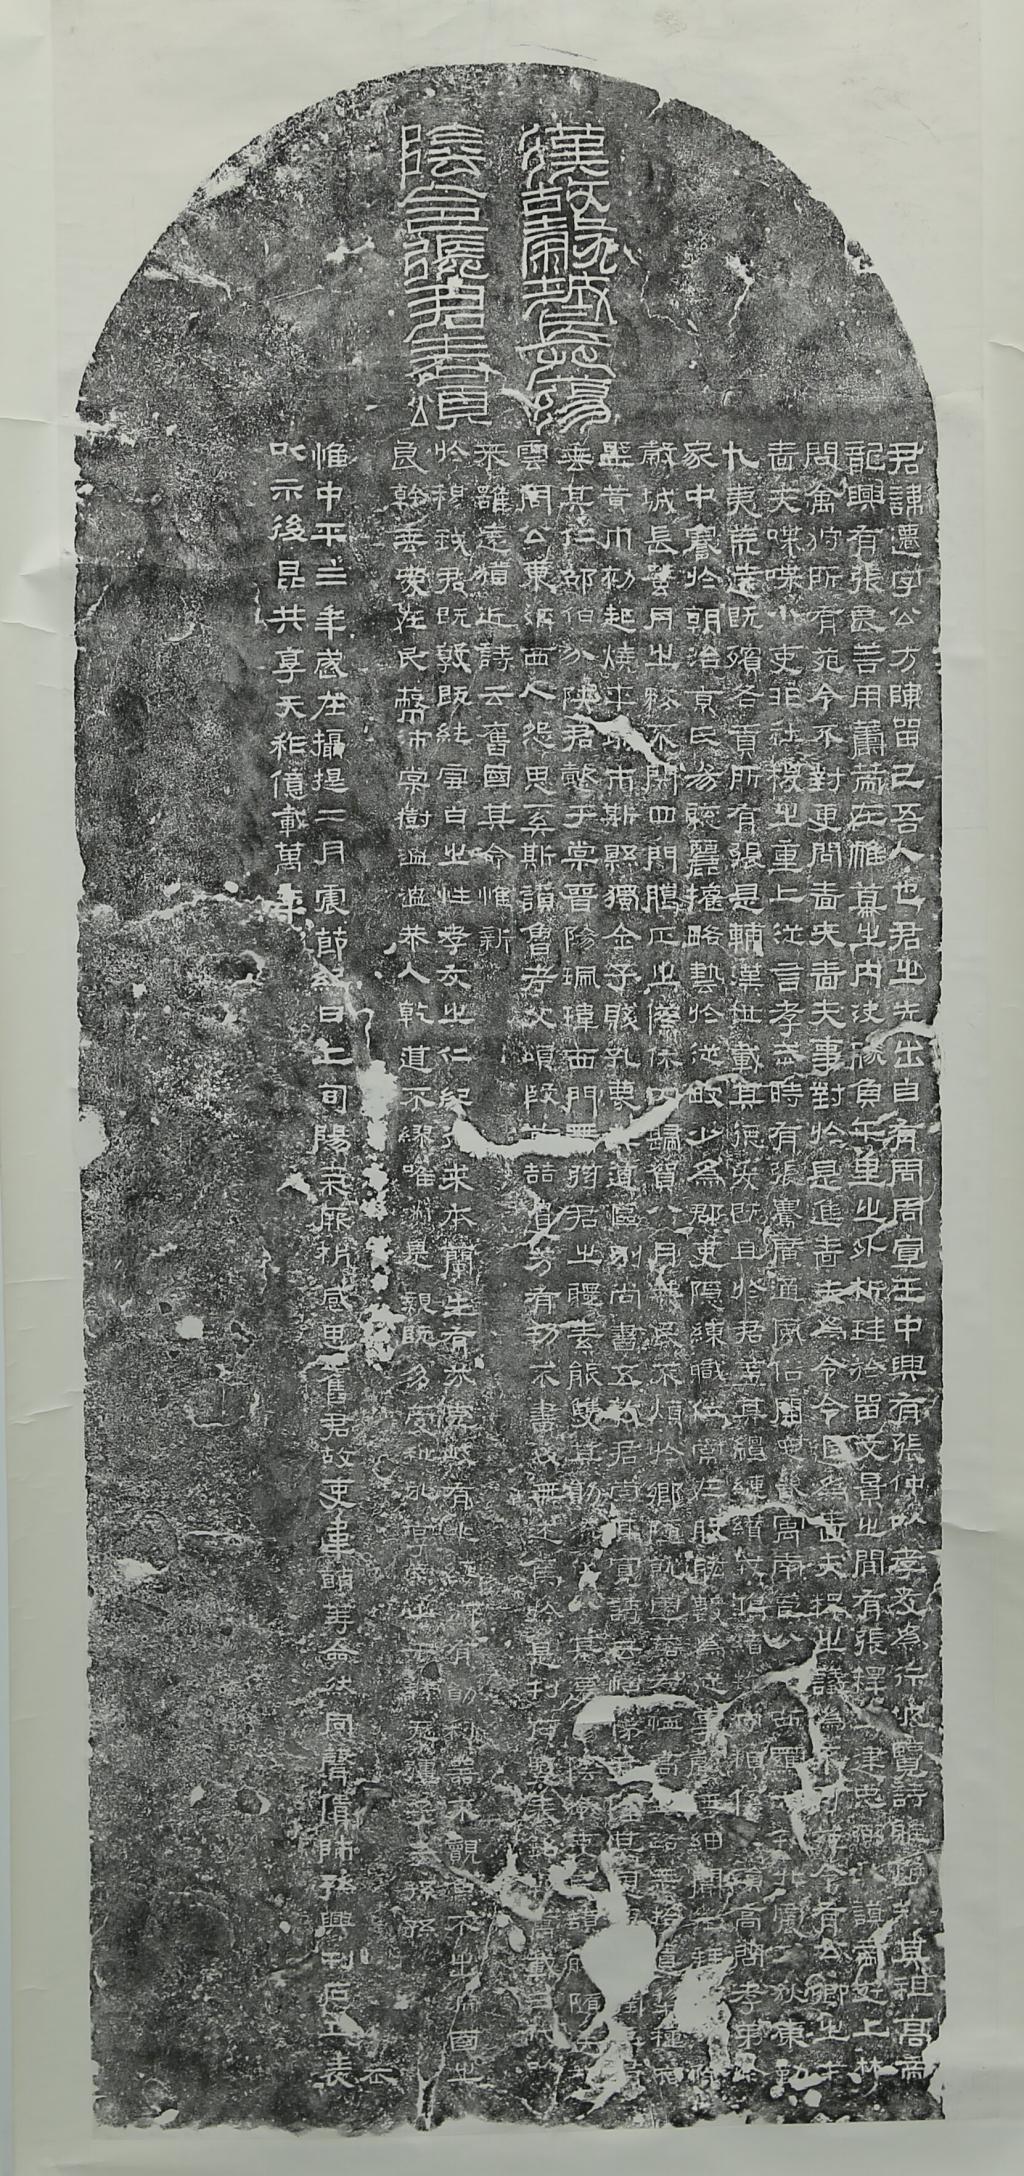 漢故穀城長蕩
陰令張君表頌
君諱遷字公方陳留己吾人也君之先出自有周周宣王中興有張仲以孝友為行披覽詩雅煥知其祖高帝
龍興有張良善用籌策在帷幕之內決勝負千里之外析珪於留文景之間有張釋之建忠弼之謨帝遊上林
問禽狩所有苑令不對更問嗇夫嗇夫事對於是進嗇夫為令令退為嗇夫釋之議為不可苑令有公卿之才
嗇夫喋喋小吏非社稷之重上從言孝武時有張騫廣通風俗開定畿寓南苞八蠻西羈六戎北震五狄東勤
九夷荒遠既殯各貢所有張是輔漢世載其德爰既且於君蓋其繵縺纘戎鴻緒牧守相係不殞高問孝弟於
家中謇於朝治京氏易聰麗權略藝於從畋少為郡吏隱練職位常在股肱數為從事聲無細聞徵拜郎中除
穀城長蠶月之務不閉四門臘正之僚休囚歸賀八月筭民不煩於鄉隨就虛落存恤高年路無拾遺犁種宿
壄黃巾初起燒平城市斯縣獨全子賤孔蔑其道區別尚書五教君崇其寬詩云愷悌君隆其恩東里潤色君
垂其仁邵伯分陝君懿于棠晉陽珮瑋西門帶弦君之體素能雙其勛流化八基遷蕩陰令吏民頡頏隨送如
雲周公東征西人怨思奚斯讚魯考父頌殷前喆遺芳有功不書後無述焉於是刊石豎表銘勒萬載三代以
來雖遠猶近詩云舊國其命惟新
於穆我君既敦既純雪白之性孝友之仁紀行來本蘭生有芬克岐有兆綏御有勛利器不覿魚不出淵國之
良幹垂愛在民蔽沛棠樹溫溫恭人乾道不繆唯淑是親既多受祉永享南山干祿無疆子子孫孫
惟中平三年歲在攝提二月震節紀日上旬陽氣厥析感思舊君故吏韋萌等僉然同聲賃師孫興刊石立表
以示後昆共享天祚億載萬年